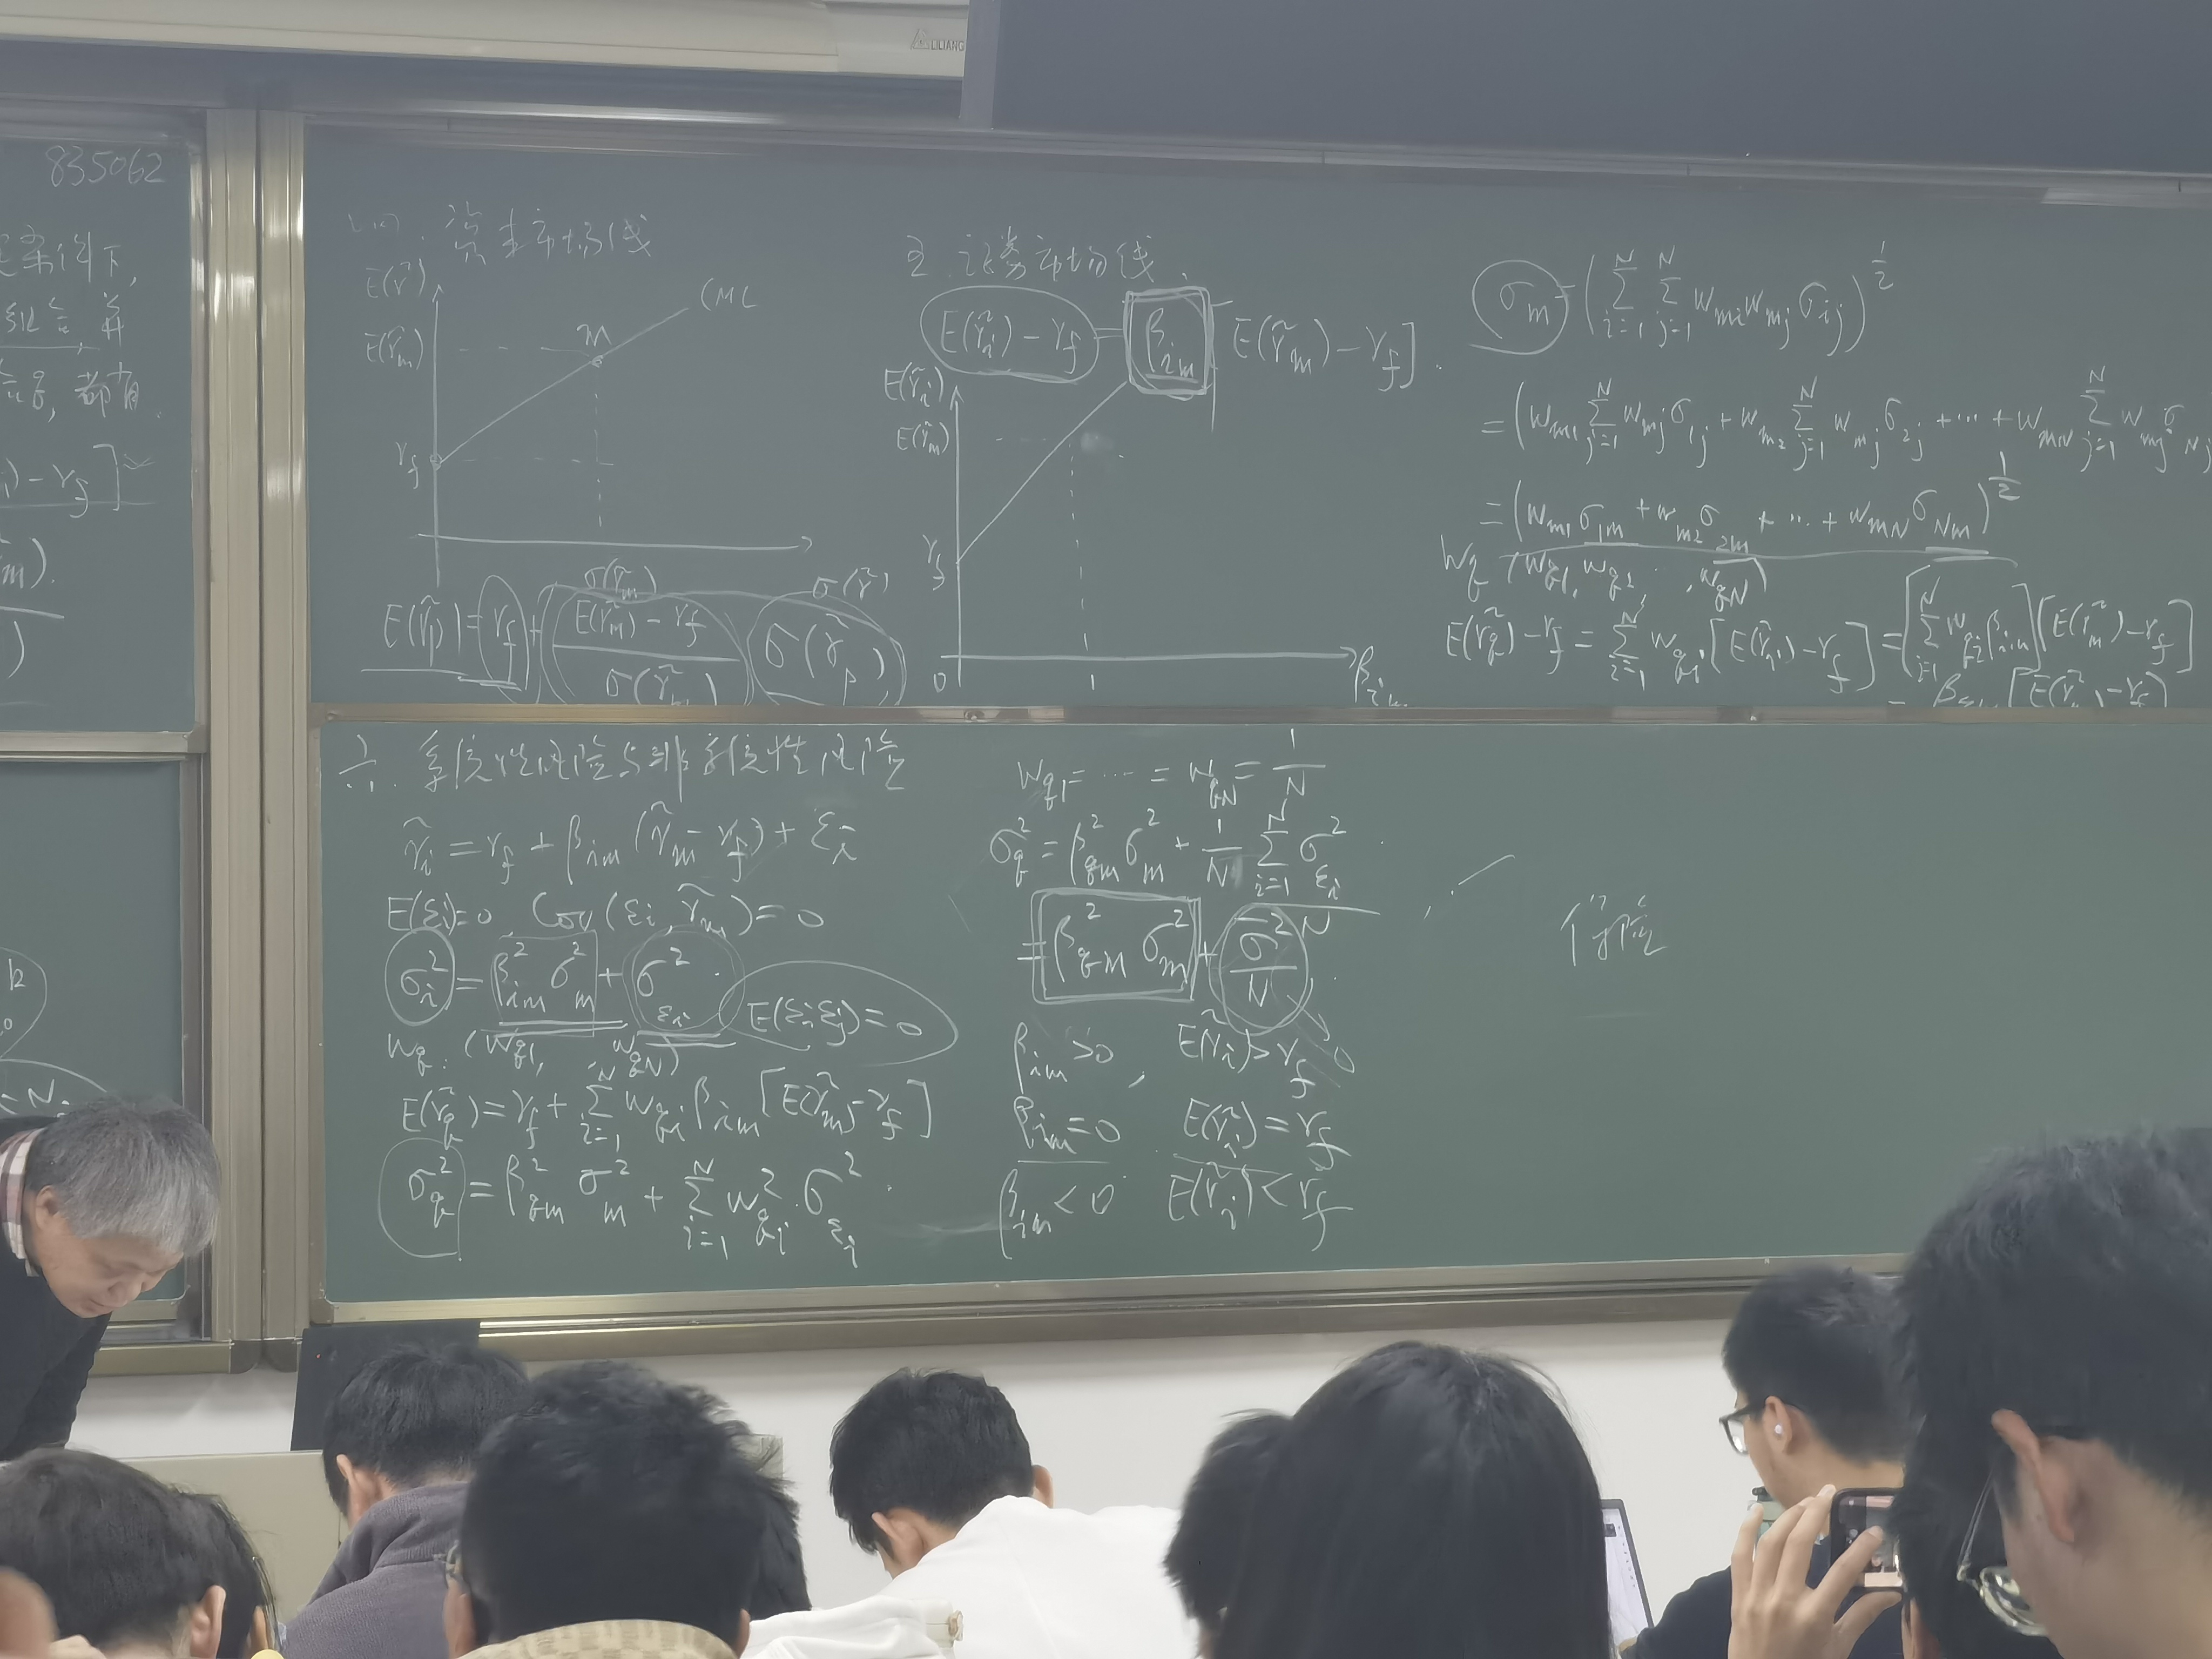 LILIANG
835062
条件下,
组合,并
都有.
) - r_f ]
m).
k
N.
四. 资本市场线
E(r̃)
CML
E(r̃_m)
m
r_f
σ(r̃_m)
σ(r̃)
E(r̃_p) = r_f + (E(r̃_m) - r_f)/σ(r̃_m) σ(r̃_p)
五. 证券市场线.
E(r̃_i) - r_f = β_im [E(r̃_m) - r_f].
E(r̃_i)
E(r̃_m)
r_f
0
1
1
β_im
σ_m = (∑_{i=1}^N ∑_{j=1}^N w_mi w_mj σ_ij)^{1/2}
= (w_m1 ∑_{j=1}^N w_mj σ_1j + w_m2 ∑_{j=1}^N w_mj σ_2j + ⋯ + w_mN ∑_{j=1}^N w_mj σ_Nj
= (w_m1 σ_1m + w_m2 σ_2m + ⋯ + w_mN σ_Nm)^{1/2}
w_q (w_q1, w_q2, ⋯, w_qN)
E(r̃_q) - r_f = ∑_{i=1}^N w_qi [E(r̃_i) - r_f] = [∑_{i=1}^N w_qi β_im] [E(r̃_m) - r_f]
= β_qm [E(r̃_m) - r_f]
六. 系统性风险与非系统性风险
r̃_i = r_f + β_im (r̃_m - r_f) + ε̃_i
E(ε̃_i) = 0 Cov(ε̃_i, r̃_m) = 0
σ_i^2 = β_im^2 σ_m^2 + σ_{εi}^2. E(ε̃_i ε̃_j) = 0
w_q: (w_q1, w_qN)
E(r̃_q) = r_f + ∑_{i=1}^N w_qi β_im [E(r̃_m) - r_f]
σ_q^2 = β_qm^2 σ_m^2 + ∑_{i=1}^N w_qi^2 · σ_{εi}^2.
w_q1 = ⋯ = w_qN = 1/N
σ_q^2 = β_qm^2 σ_m^2 + 1/N ∑_{i=1}^N σ_{εi}^2 / N
= β_qm^2 σ_m^2 + σ^2/N → 0
β_im > 0, E(r̃_i) > r_f
β_im = 0 E(r̃_i) = r_f
β_im < 0 E(r̃_i) < r_f
保险